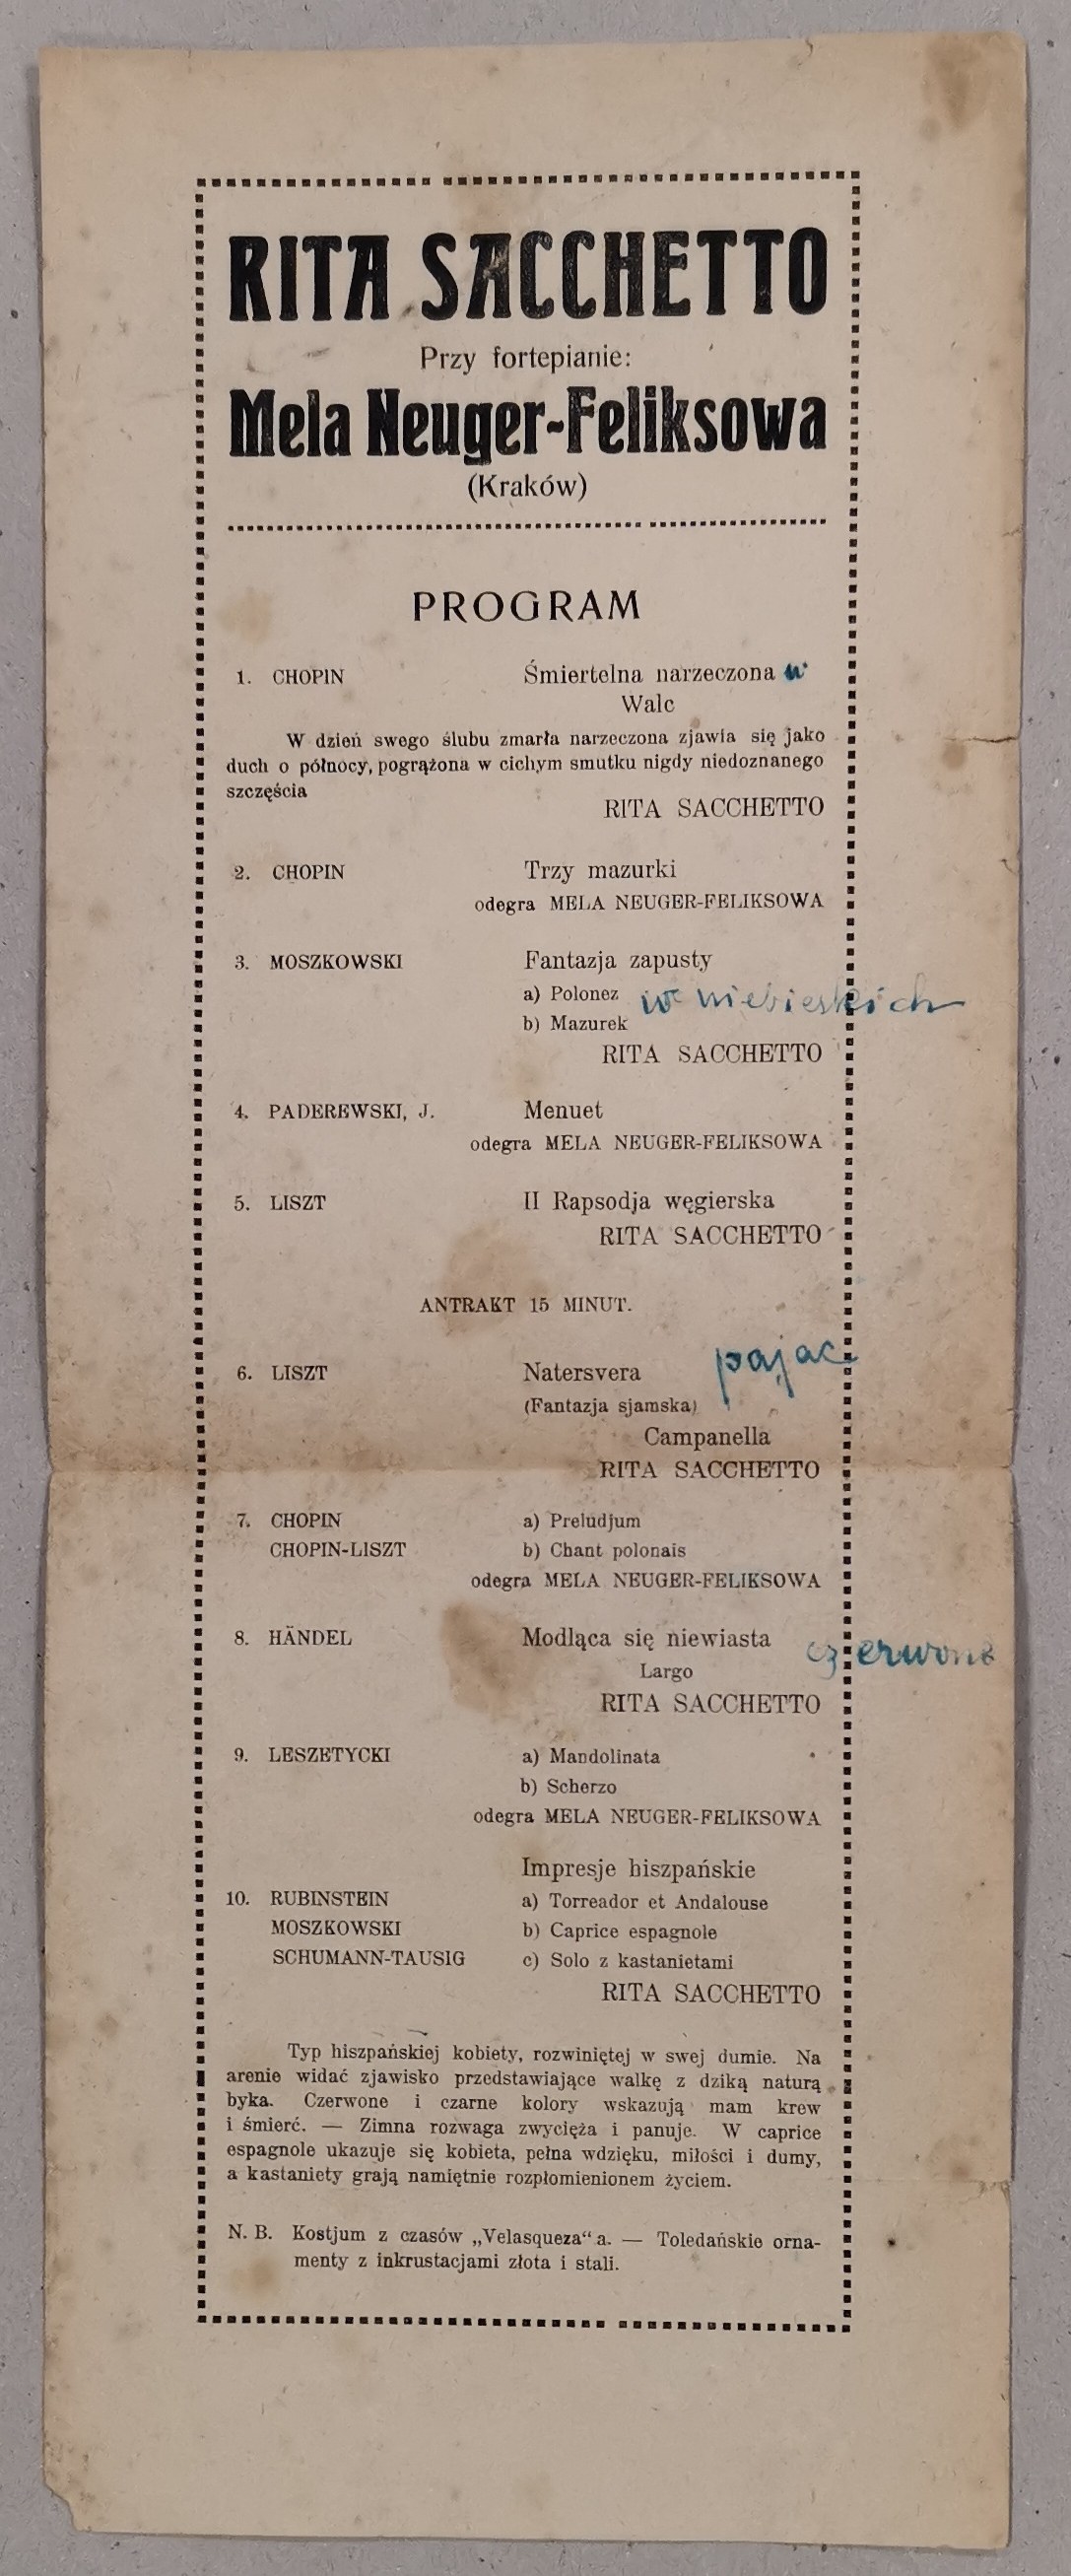 RITA SACCHETTO
Przy fortepianie:
Mela Neuger-Feliksowa
(Kraków)
PROGRAM
1. CHOPIN Śmiertelna narzeczona w
Walc
W dzień swego ślubu zmarła narzeczona zjawia się jako
duch o północy, pogrążona w cichym smutku nigdy niedoznanego
szczęścia
RITA SACCHETTO
2. CHOPIN Trzy mazurki
odegra MELA NEUGER-FELIKSOWA
3. MOSZKOWSKI Fantazja zapusty
a) Polonez w niebieskich
b) Mazurek
RITA SACCHETTO
4. PADEREWSKI, J. Menuet
odegra MELA NEUGER-FELIKSOWA
5. LISZT II Rapsodja węgierska
RITA SACCHETTO
ANTRAKT 15 MINUT.
pajac
6. LISZT Natersvera
(Fantazja sjamska)
Campanella
RITA SACCHETTO
7. CHOPIN a) Preludjum
CHOPIN-LISZT b) Chant polonais
odegra MELA NEUGER-FELIKSOWA
8. HÄNDEL Modląca się niewiasta czerwone
Largo
RITA SACCHETTO
9. LESZETYCKI a) Mandolinata
b) Scherzo
odegra MELA NEUGER-FELIKSOWA
Impresje hiszpańskie
10. RUBINSTEIN a) Torreador et Andalouse
MOSZKOWSKI b) Caprice espagnole
SCHUMANN-TAUSIG c) Solo z kastanietami
RITA SACCHETTO
Typ hiszpańskiej kobiety, rozwiniętej w swej dumie. Na
arenie widać zjawisko przedstawiające walkę z dziką naturą
byka. Czerwone i czarne kolory wskazują mam krew
i śmierć. — Zimna rozwaga zwycięża i panuje. W caprice
espagnole ukazuje się kobieta, pełna wdzięku, miłości i dumy,
a kastaniety grają namiętnie rozpłomienionem życiem.
N. B. Kostjum z czasów „Velasqueza“ a. — Toledańskie orna-
menty z inkrustacjami złota i stali.